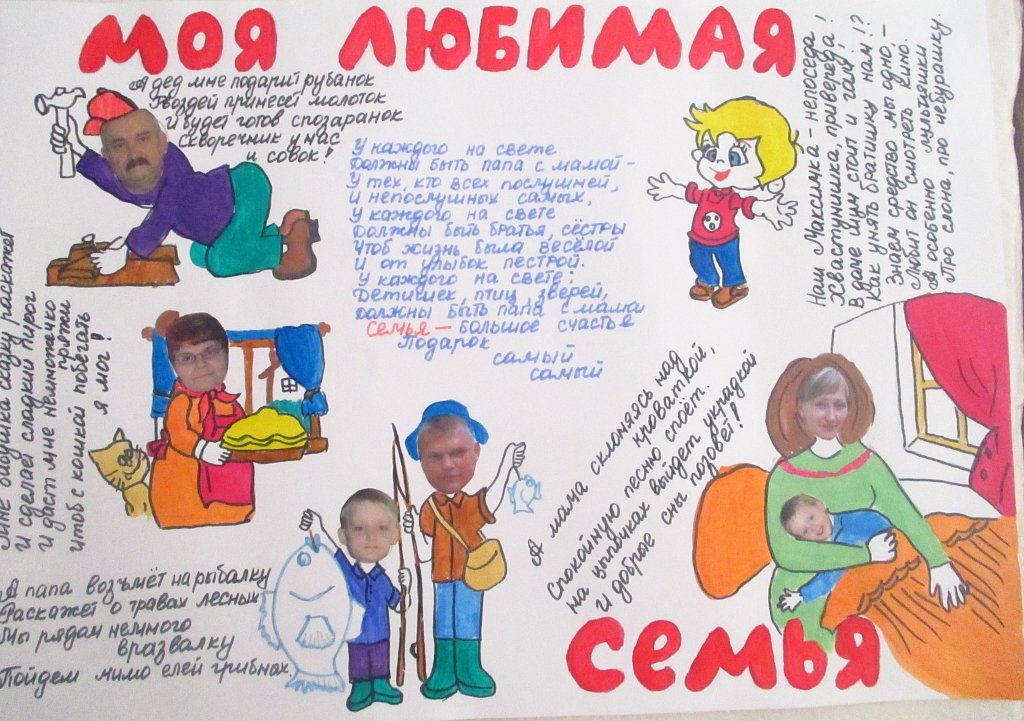 МОЯ ЛЮБИМАЯ
А дед мне подарит рубанок
Гвоздей принесёт молоток
И будет готов спозаранок
Скворечник у нас
и совок!
У каждого на свете
Должны быть папа с мамой –
У тех, кто всех послушней,
И непослушных самых,
У каждого на свете
Должны быть братья, сёстры
Чтоб жизнь была весёлой
И от улыбок пёстрой.
У каждого на свете:
Детишек, птиц, зверей,
Должны быть папа с мамой
Семья – большое счастье
Подарок
самый
самый
Наш Максимка - непоседа!
Хвастунишка, привереда!
В доме шум стоит и гам!
Как унять братишку нам!?
Знаем средство мы одно, –
Любит он смотреть кино.
А особенно мультяшки
Про слона, про чебурашку.
Мне бабушка сказку расскажет
И сделает сладкий пирог
И даст мне немножечко
пряжи
Чтоб с кошкой побегать
я мог!
А мама склоняясь над
кроваткой,
Спокойную песню споёт.
На цыпочках выйдет украдкой
и добрые сны позовёт!
А папа возьмёт на рыбалку
Расскажет о травах лесных
Мы рядом немного
вразвалку
Пойдем мимо елей грибных.
семья